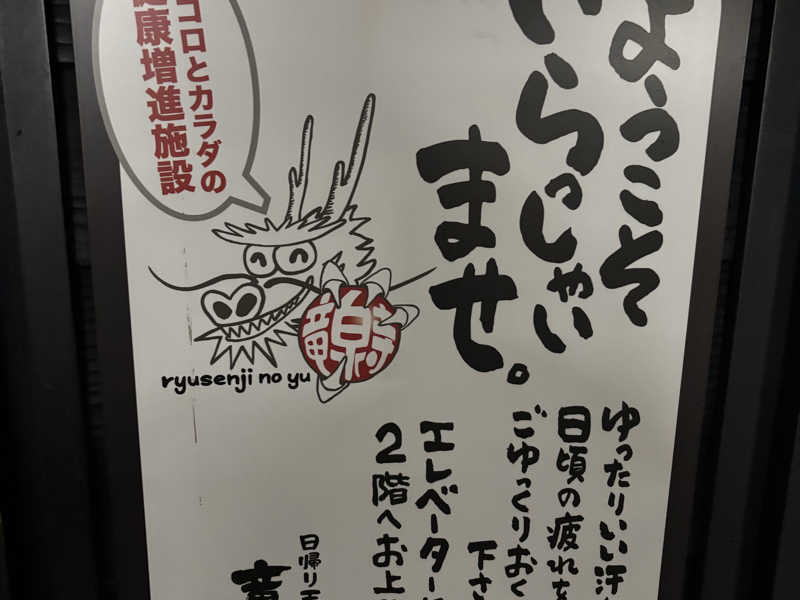 ようこそ
いらっしゃい
ませ。
ココロとカラダの
健康増進施設
竜泉寺
ryusenji no yu
ゆったりいい汗
日頃の疲れを
ごゆっくりおく
下さ
エレベーター
2階へお上
日帰り
竜